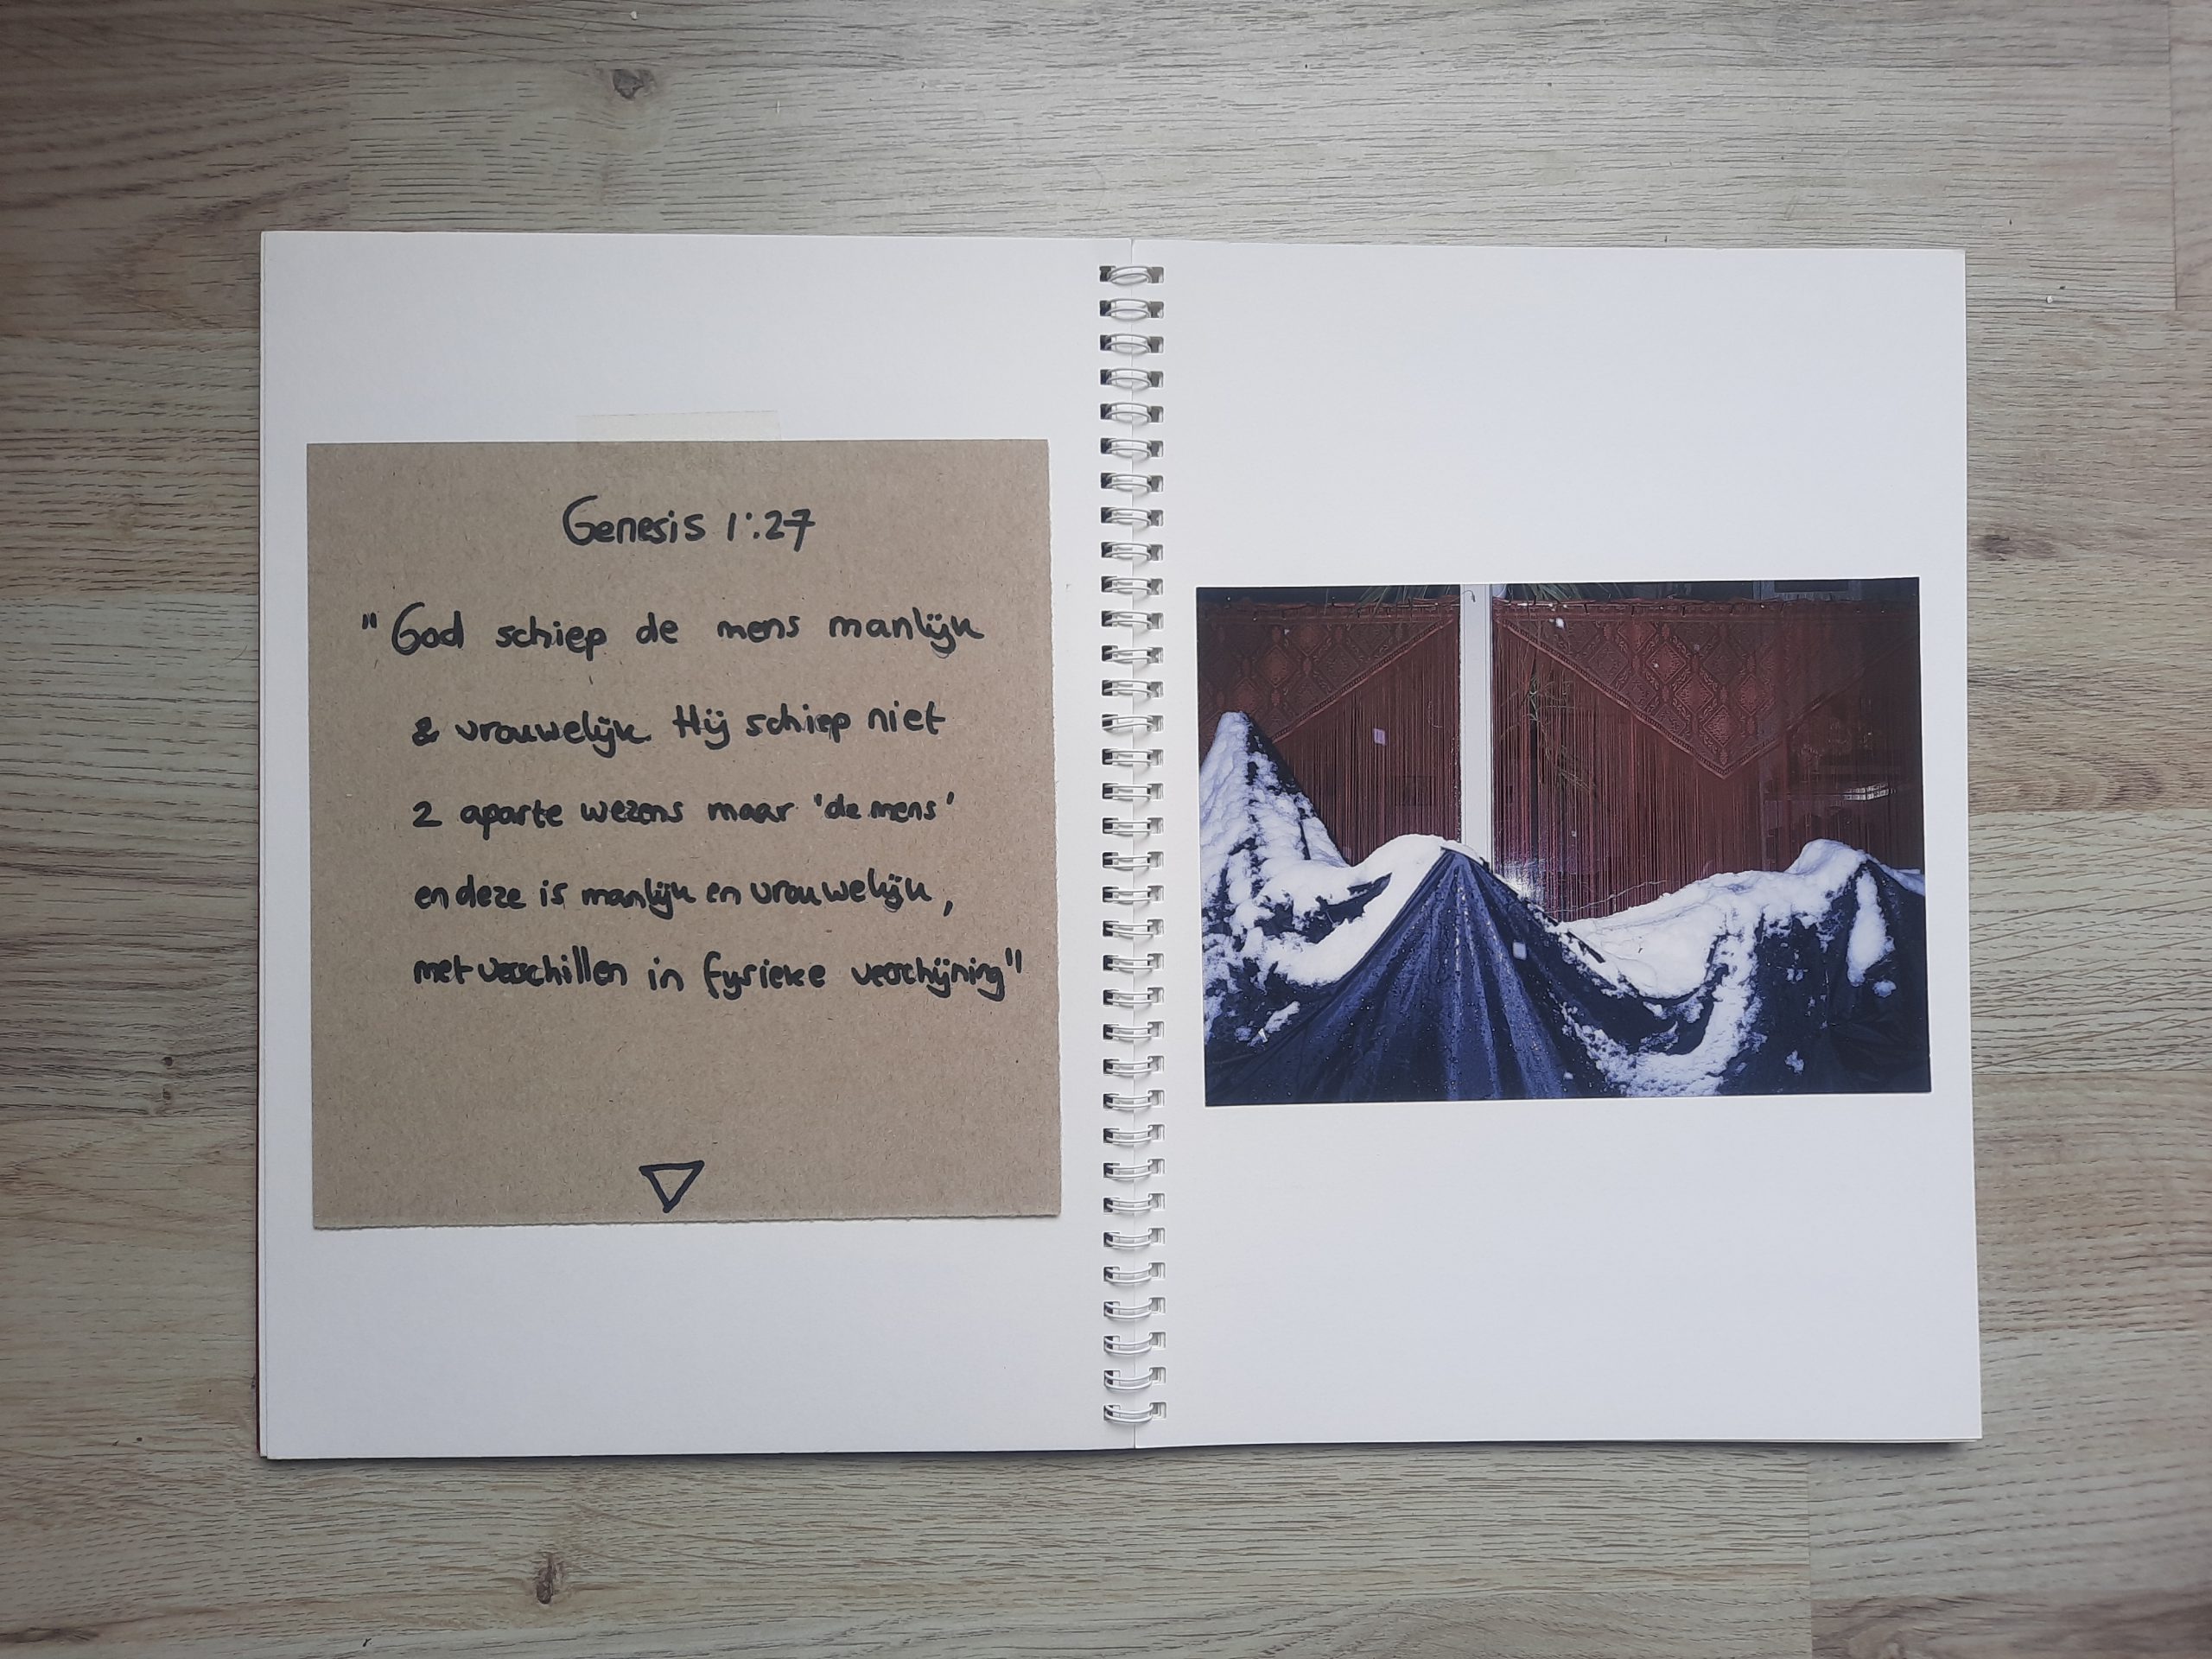 Genesis 1:27
"God schiep de mens manlijk
& vrouwelijk. Hij schiep niet
2 aparte wezens maar 'de mens'
en deze is manlijk en vrouwelijk,
met verschillen in fysieke verschijning"